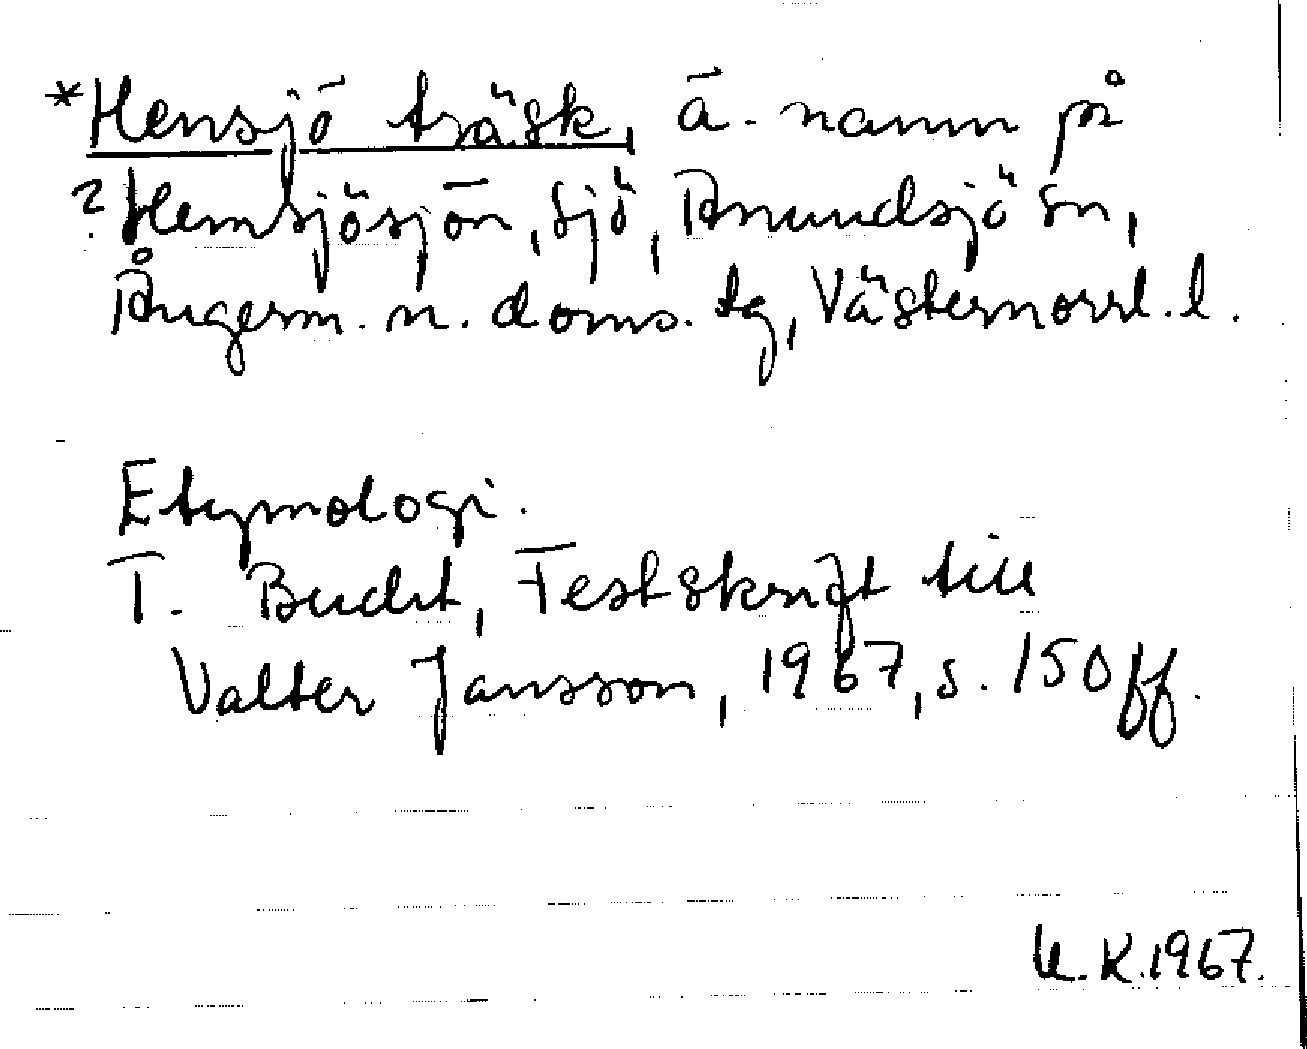 *Hensjö träsk, ä. namn på
? Hemsjösjön, sjö, Anundsjö sn,
Ångerm. n. doms. tg, Västernorrl. l.
Etymologi.
T. Bucht, Festskrift till
Valter Jansson, 1967, s. 150 ff.
U. K. 1967.